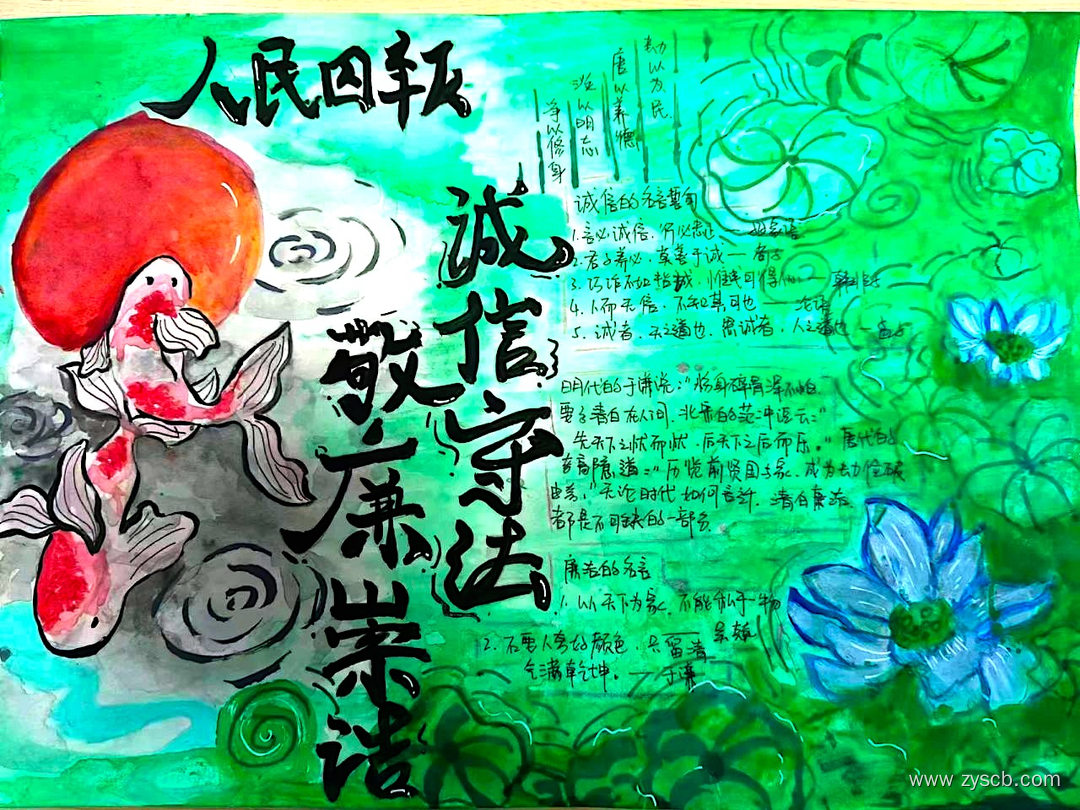 人民日报
诚信守法
敬廉崇洁
勤以为民
廉以养德
淡以明志
争以修身
诚信的名言警句
1.言必诚信，
2.君子养心，莫善于诚——荀子
3.巧诈不如拙诚，惟诚可得人心——韩非子
4.人而无信，不知其可也——论语
5.诚者，天之道也，思诚者，人之道也——孟子
明代的于谦说："粉身碎骨浑不怕，
要留清白在人间，北宋的范仲淹云："
先天下之忧而忧，后天下之后而乐。"唐代的
李商隐道："历览前贤国与家，成由勤俭破
由奢，"无论时代如何変迁，清白廉洁
都是不可缺的一部分
廉洁的名言
1.以天下为家，不能私于一物
2.不要人夸好颜色，只留清
气满乾坤。
www.zyscb.com